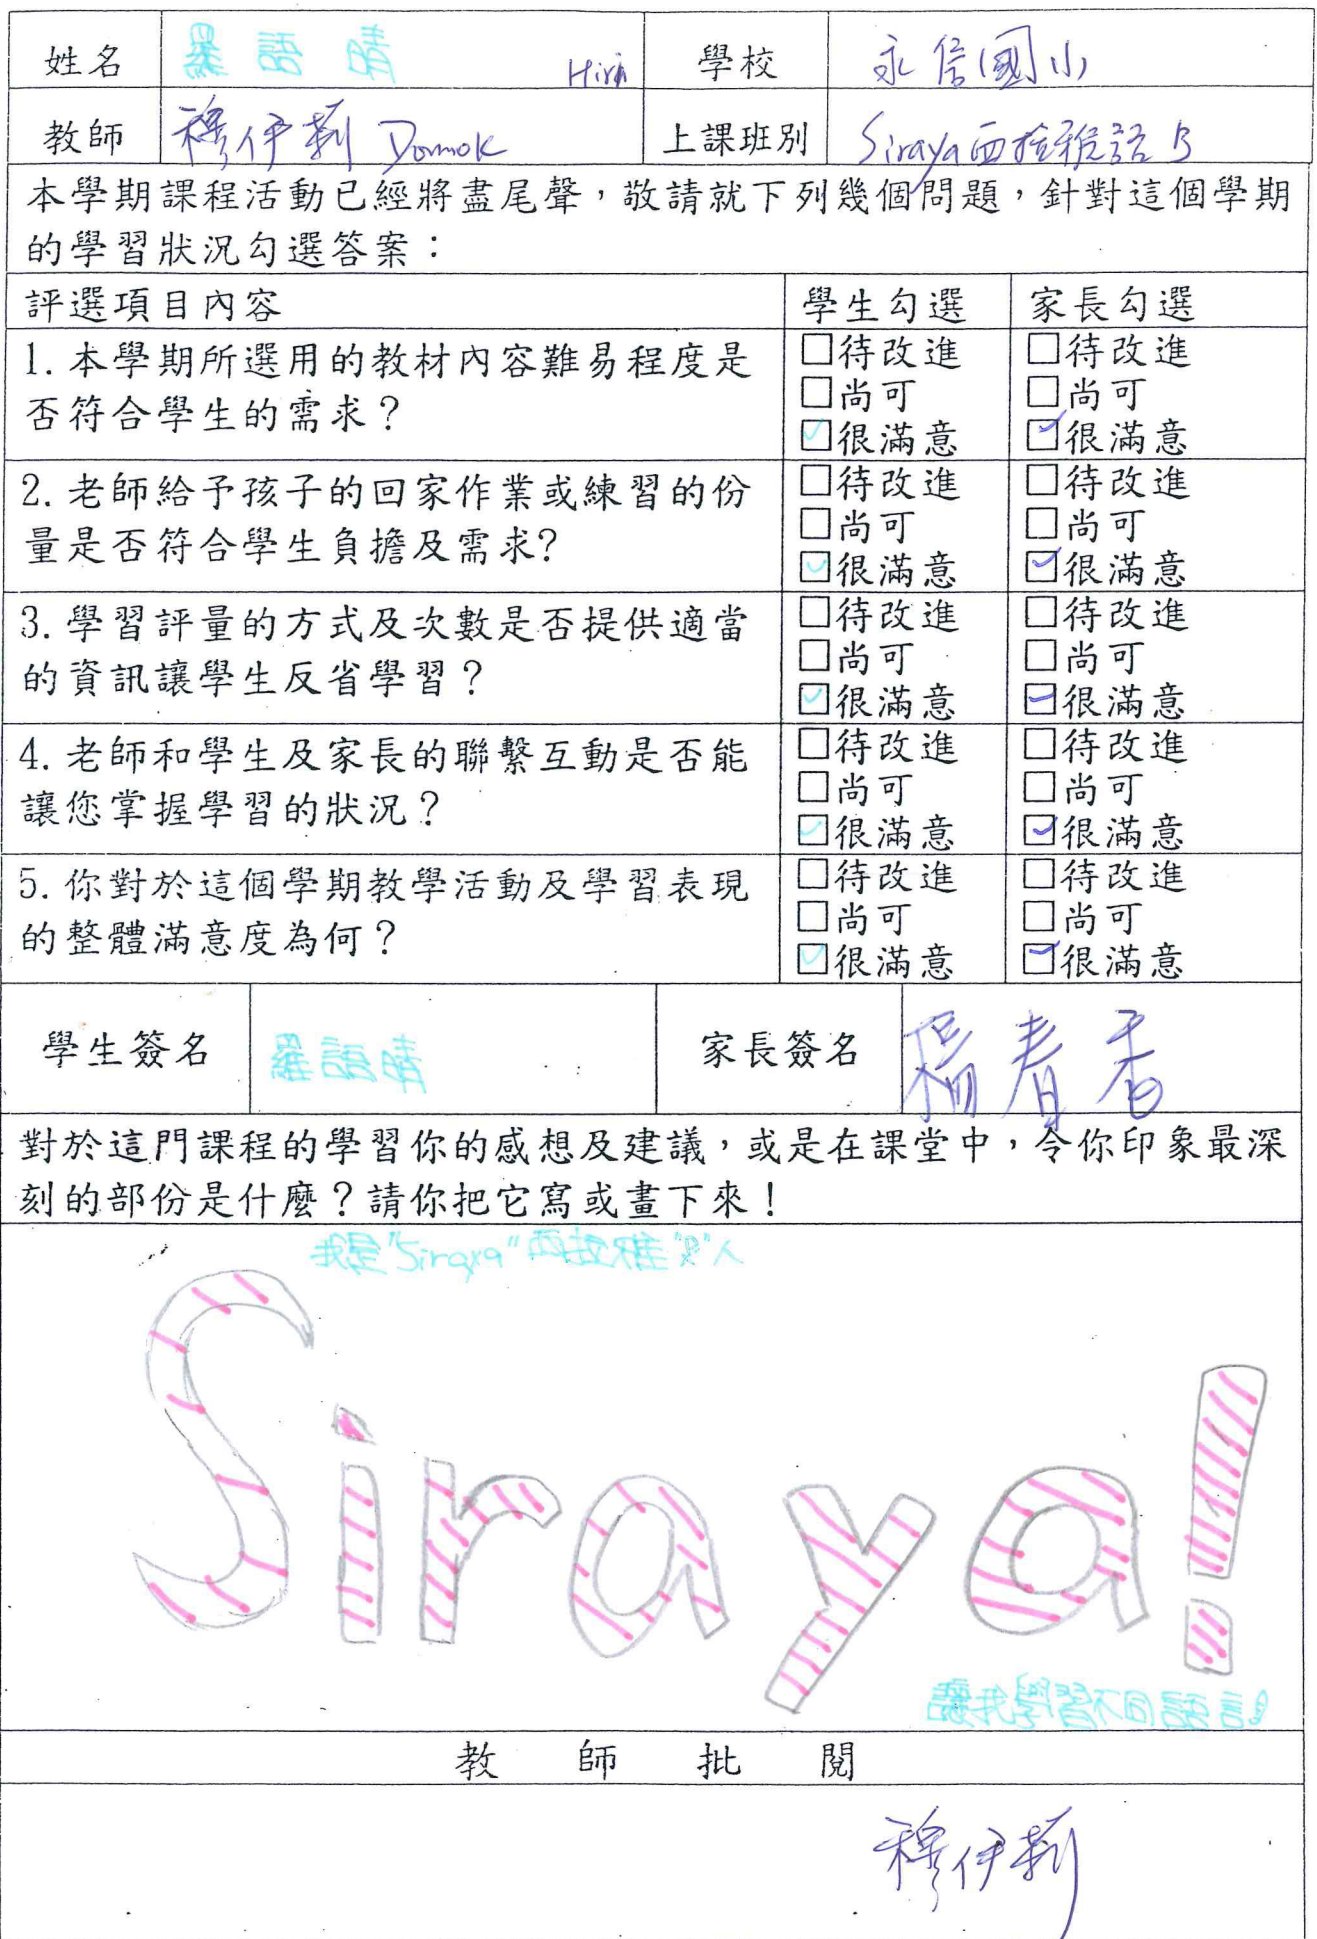 姓名 羅語晴 Hirin 學校 永信國小
教師 穆伊莉 Domok 上課班別 Siraya西拉雅語 B
本學期課程活動已經將盡尾聲，敬請就下列幾個問題，針對這個學期
的學習狀況勾選答案：
評選項目內容 學生勾選 家長勾選
1. 本學期所選用的教材內容難易程度是
否符合學生的需求？
□待改進 □待改進
□尚可 □尚可
☑很滿意 ☑很滿意
2. 老師給予孩子的回家作業或練習的份
量是否符合學生負擔及需求?
□待改進 □待改進
□尚可 □尚可
☑很滿意 ☑很滿意
3. 學習評量的方式及次數是否提供適當
的資訊讓學生反省學習？
□待改進 □待改進
□尚可 □尚可
☑很滿意 ☑很滿意
4. 老師和學生及家長的聯繫互動是否能
讓您掌握學習的狀況？
□待改進 □待改進
□尚可 □尚可
☑很滿意 ☑很滿意
5. 你對於這個學期教學活動及學習表現
的整體滿意度為何？
□待改進 □待改進
□尚可 □尚可
☑很滿意 ☑很滿意
學生簽名 羅語晴 家長簽名 春香
對於這門課程的學習你的感想及建議，或是在課堂中，令你印象最深
刻的部份是什麼？請你把它寫或畫下來！
我是"Siraya"西拉雅人
Siraya!
讓我學習不同語言!
教師批閱
穆伊莉